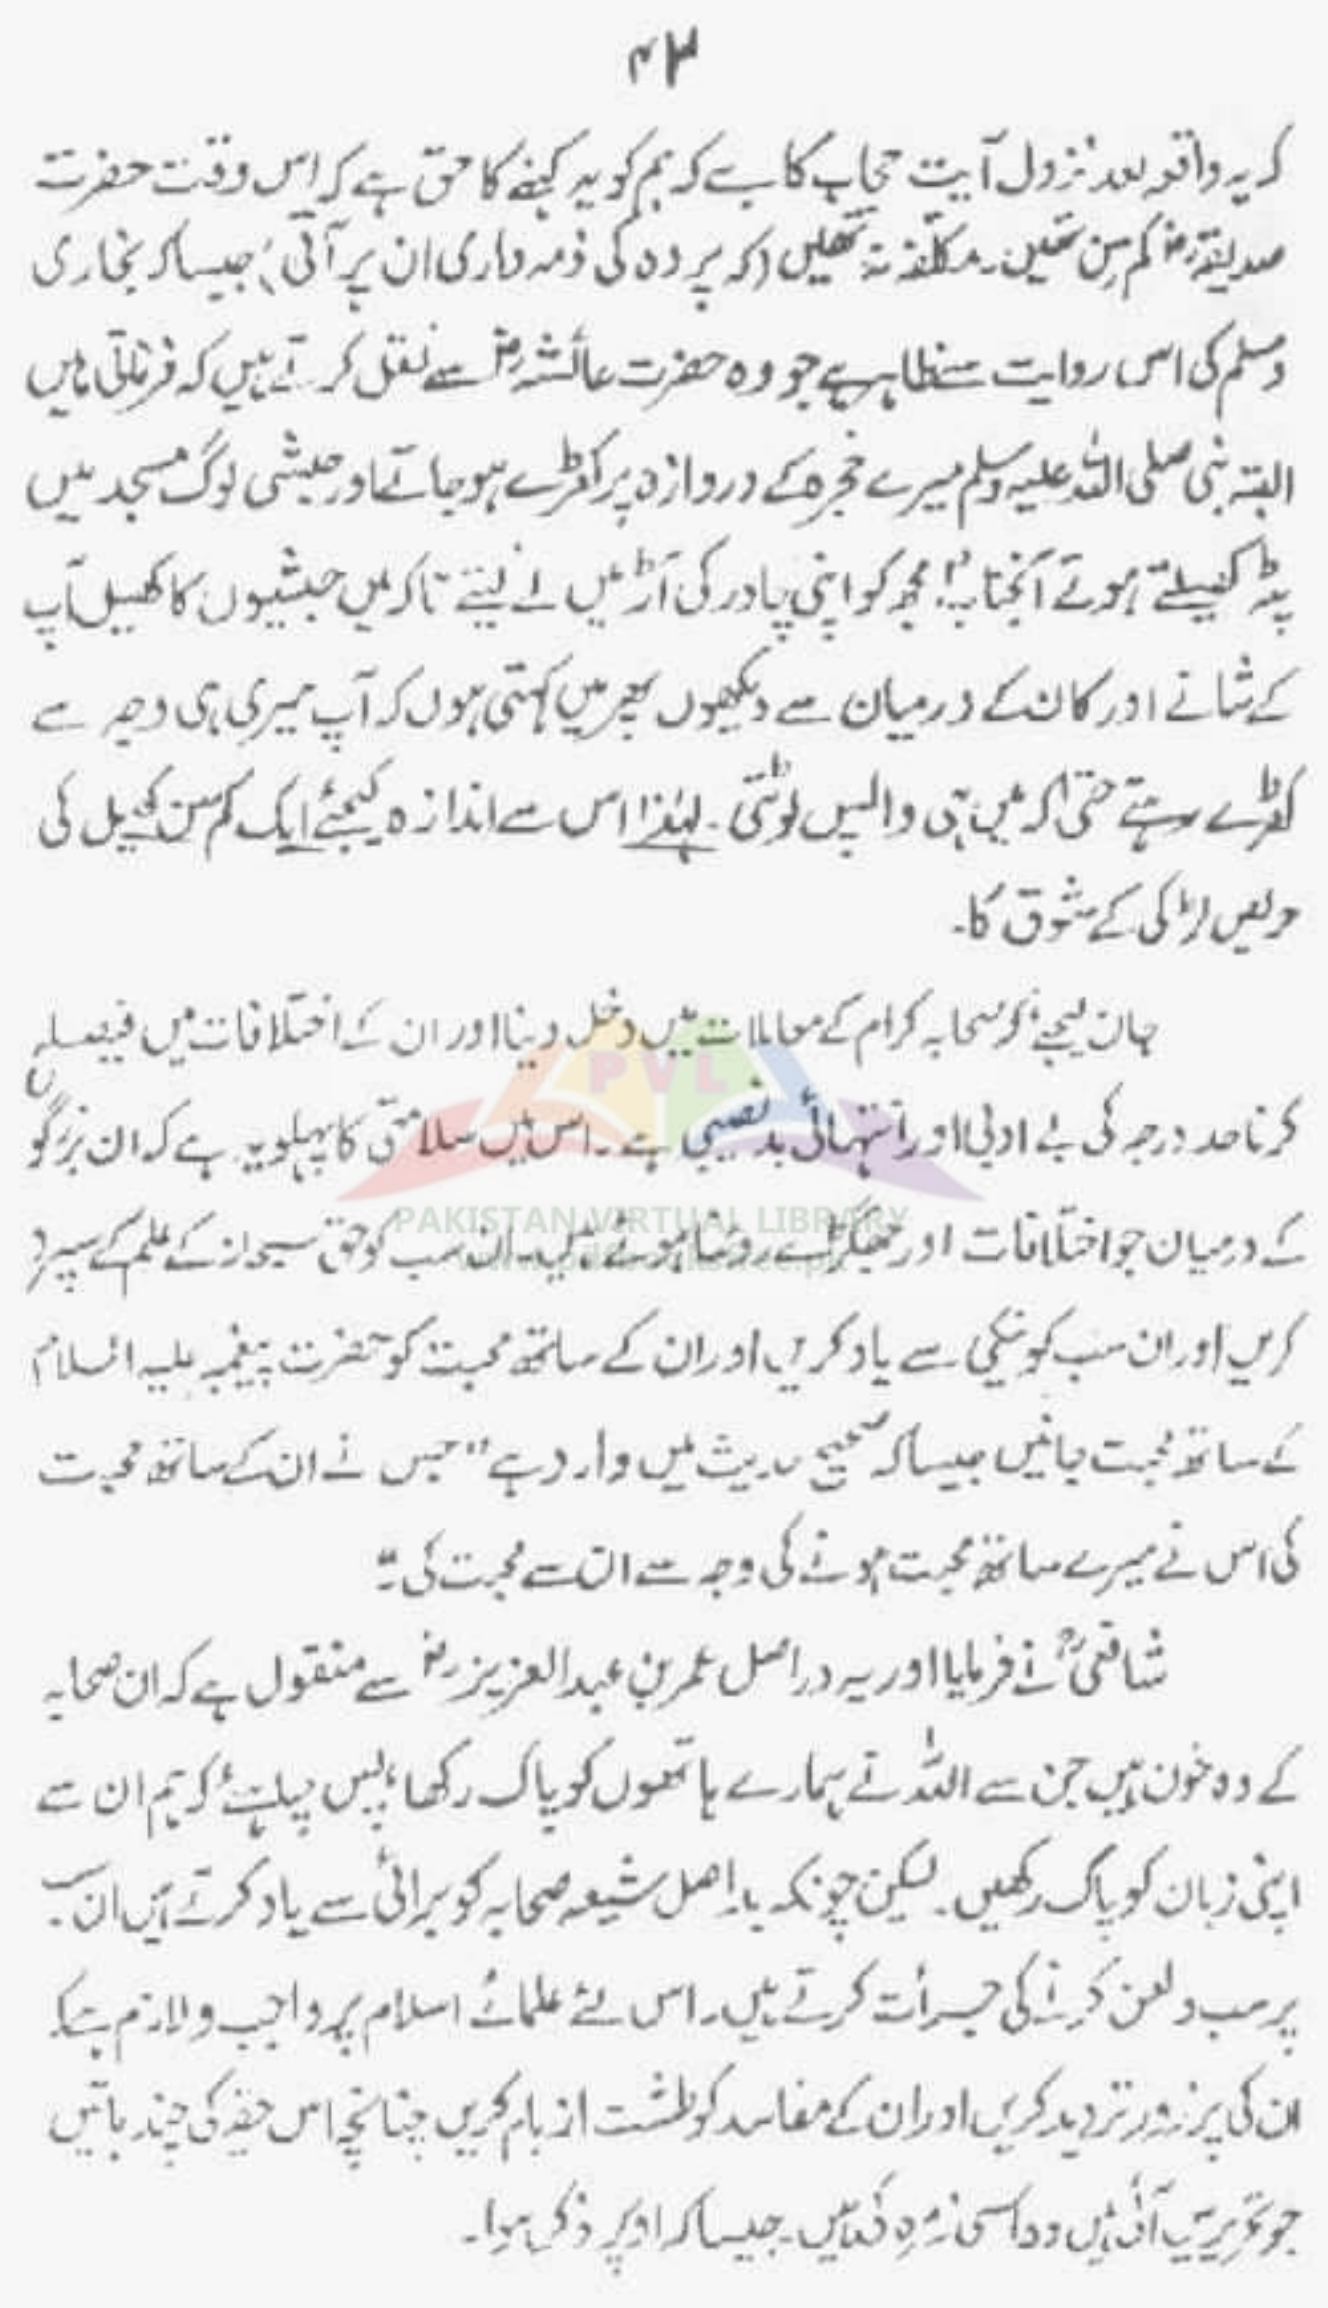 ۴۳
کہ یہ واقعہ بعد نزول آیت حجاب کا ہے کہ ہم کو یہ کہنے کا حق ہے کہ اس وقت حضرت
صدیقہؓ کم سن تھیں۔ مکلفہ نہ تھیں (کہ پردہ کی ذمہ داری ان پر آتی) جیسا کہ بخاری
و مسلم کی اس روایت سے ظاہر ہے جو وہ حضرت عائشہؓ سے نقل کرتے ہیں کہ فرماتی ہیں
البتہ نبی صلی اللہ علیہ وسلم میرے حجرہ کے دروازہ پر کھڑے ہو جاتے اور حبشی لوگ مسجد میں
پٹہ کھیلتے ہوتے آنجنابؐ! مجھ کو اپنی چادر کی آڑ میں لے لیتے تاکہ میں حبشیوں کا کھیل آپ
کے شانے اور کان کے درمیان سے دیکھوں پھر میں کہتی ہوں کہ آپ میری ہی وجہ سے
کھڑے رہتے حتیٰ کہ میں ہی واپس لوٹتی۔ لہٰذا اس سے اندازہ کیجئے ایک کم سن کھیل کی
حریص لڑکی کے شوق کا۔
جان لیجئے کہ صحابہ کرام کے معاملات میں دخل دینا اور ان کے اختلافات میں فیصلہ
کرنا حد درجہ کی بے ادبی اور انتہائی بد نصیبی ہے۔ اس میں سلامتی کا پہلو یہ ہے کہ ان بزرگوں
کے درمیان جو اختلافات اور جھگڑے رونما ہوئے ہیں۔ ان سب کو حق سبحانہ کے علم کے سپرد
کریں اور ان سب کو نیکی سے یاد کریں اور ان کے ساتھ محبت کو حضرت پیغمبر علیہ السلام
کے ساتھ محبت جانیں جیسا کہ صحیح حدیث میں وارد ہے "جس نے ان کے ساتھ محبت
کی اس نے میرے ساتھ محبت ہونے کی وجہ سے ان سے محبت کی۔"
شافعیؒ نے فرمایا اور یہ دراصل عمر بن عبدالعزیزؓ سے منقول ہے کہ ان صحابہ
کے وہ خون ہیں جن سے اللہ نے ہمارے ہاتھوں کو پاک رکھا، پس چاہئے کہ ہم ان سے
اپنی زبان کو پاک رکھیں۔ لیکن چونکہ بد اصل شیعہ صحابہ کو برائی سے یاد کرتے ہیں ان سب
پر سب و لعن کرنے کی جرأت کرتے ہیں۔ اس لئے علمائے اسلام پر واجب و لازم ہے کہ
ان کی پر زور تردید کریں اور ان کے مفاسد کو طشت از بام کریں چنانچہ اس حقیر کی چند باتیں
جو تحریر میں آئی ہیں وہ اسی زمرہ کی ہیں۔ جیسا کہ اوپر ذکر ہوا۔
PVL
PAKISTAN VIRTUAL LIBRARY